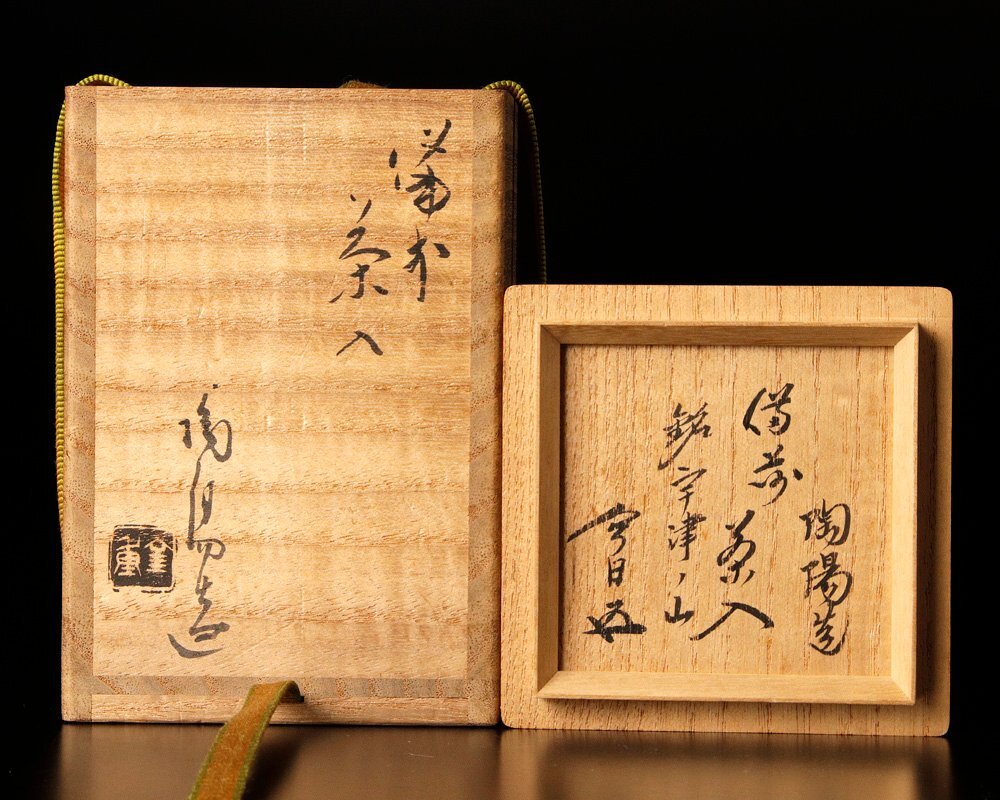 備前
茶入
陶陽造
金重
陶陽造
備前茶入
銘宇津ノ山
今日